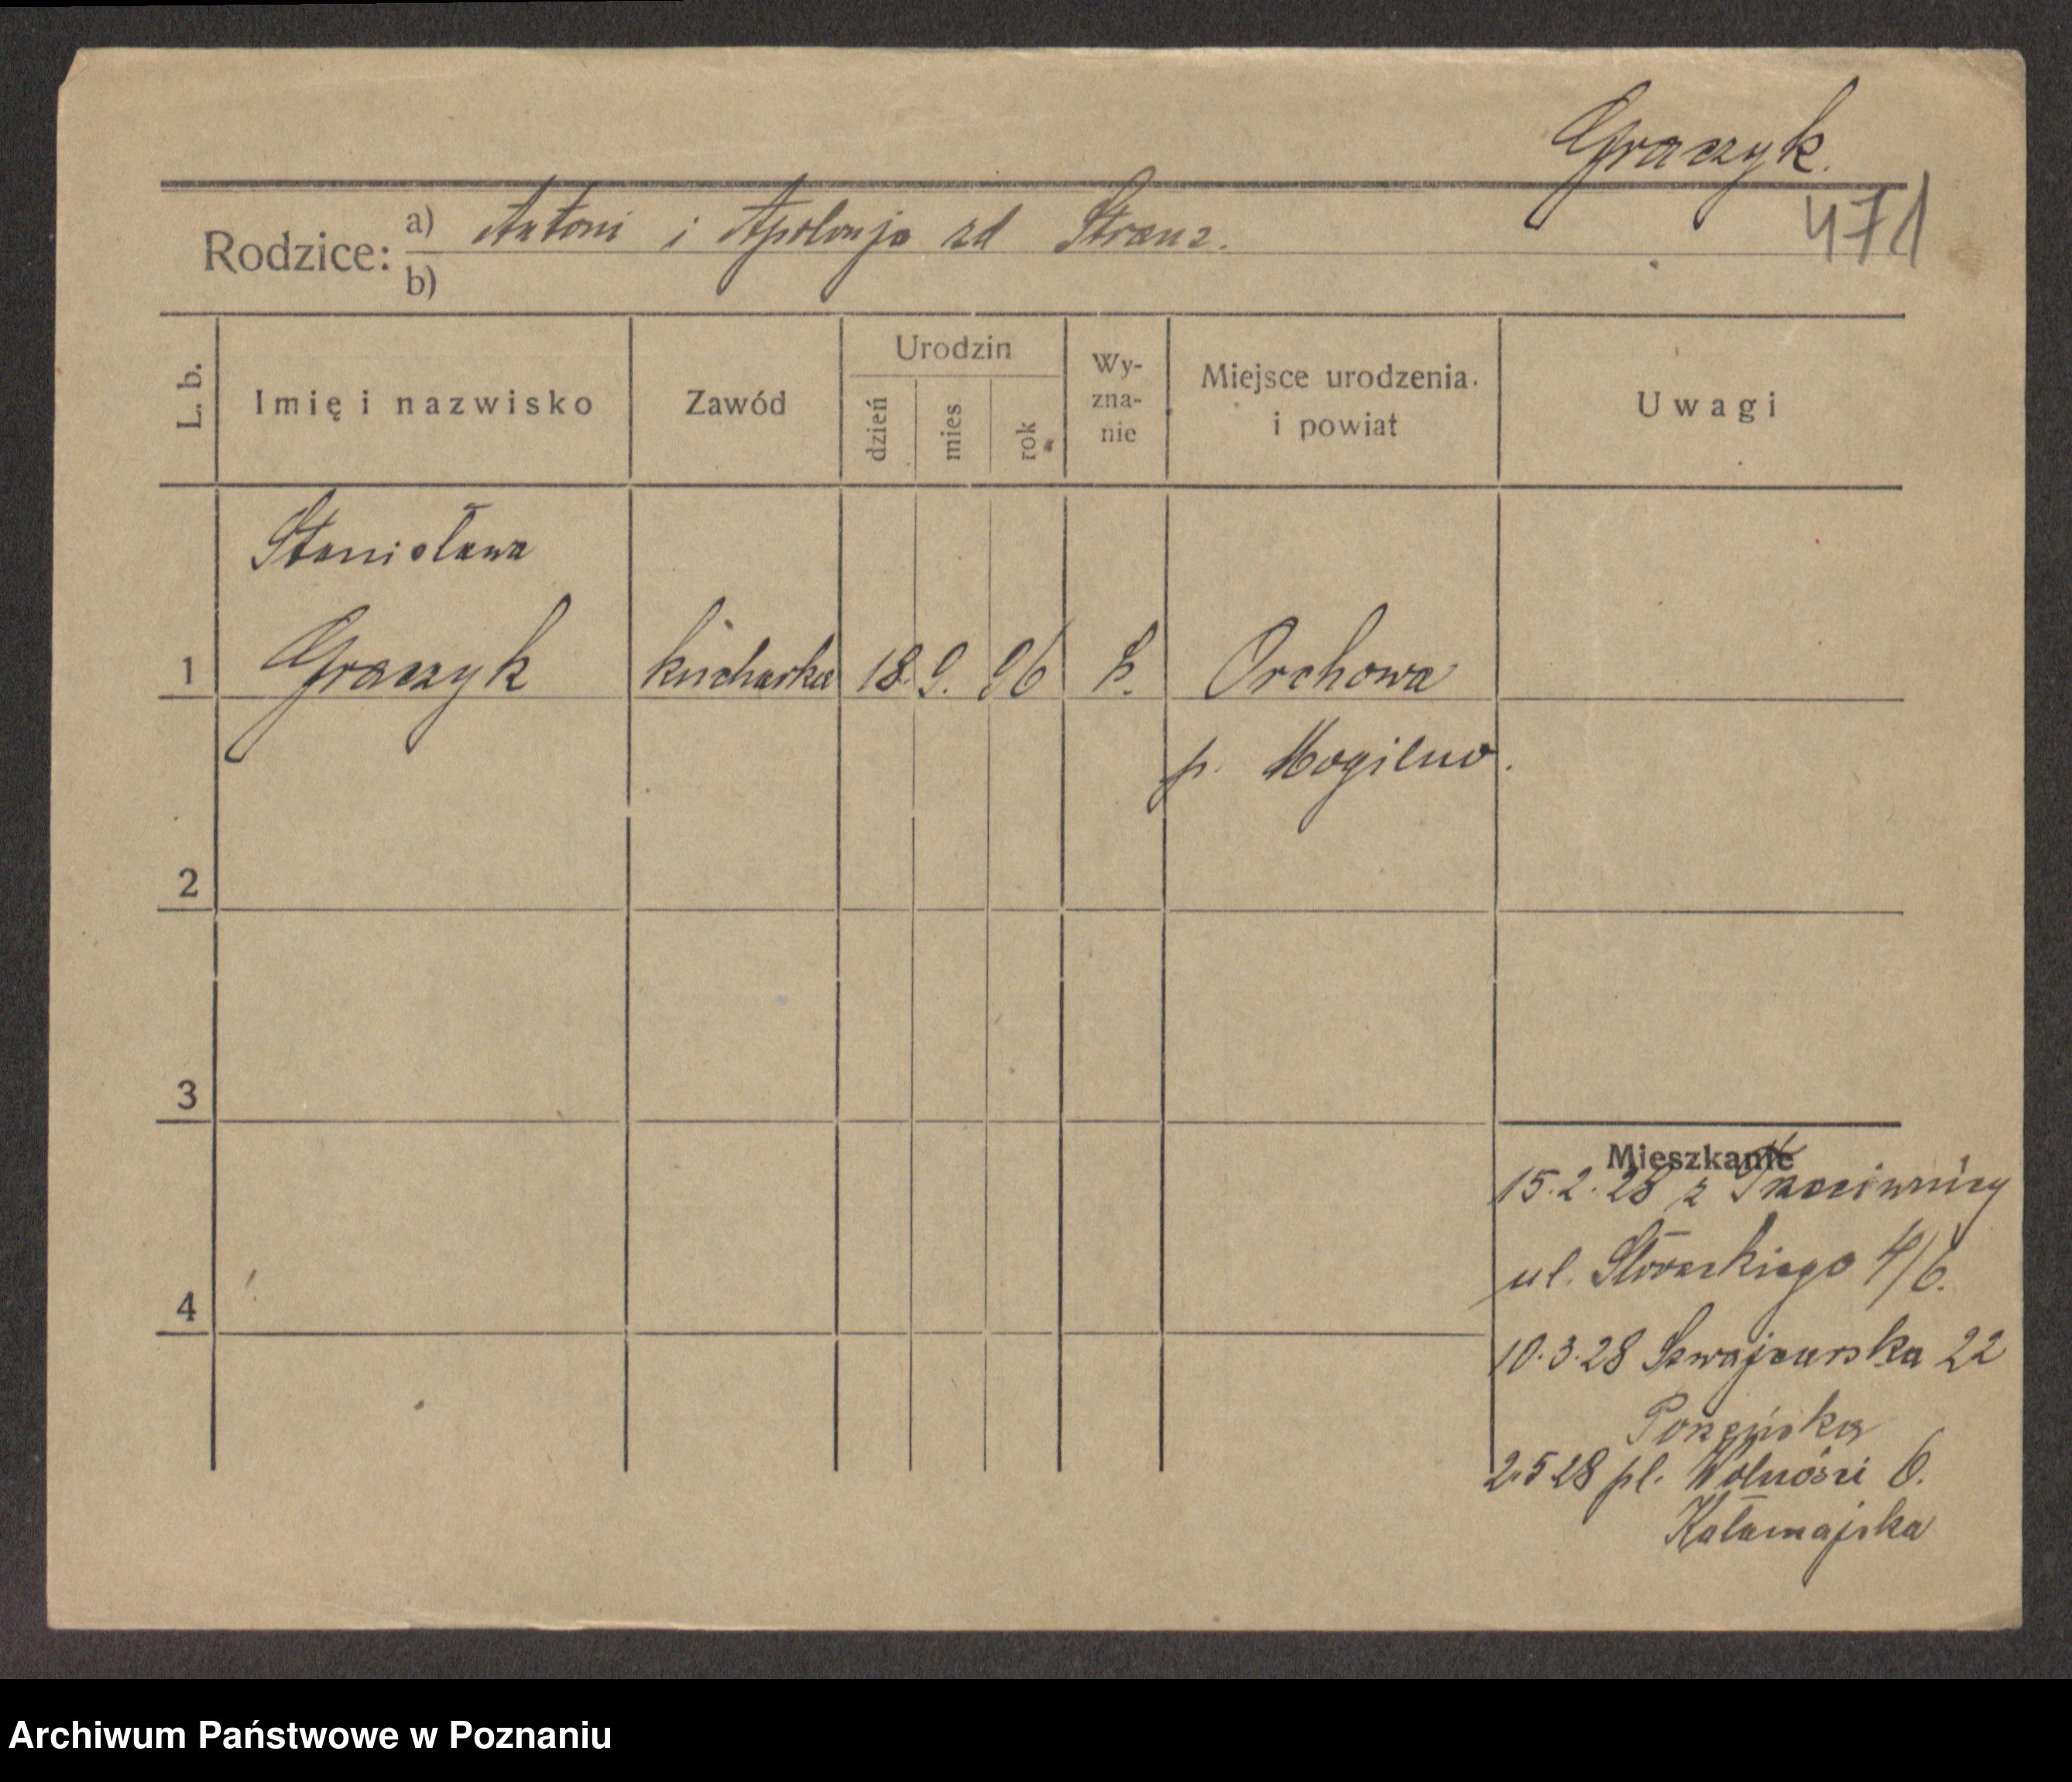 Graczyk.
471
Rodzice: a) Antoni i Apolonja zd Stranz.
b)
L. b. Imię i nazwisko Zawód Urodzin dzień mies rok Wyznanie Miejsce urodzenia i powiat Uwagi
Stanisława
1 Graczyk kucharka 18. 9. 96 k. Orchowa
p. Mogilno.
2
3
Mieszkanie
15.2.28 z
ul. 4/6.
4
10.3.28 Szwajcarska 22
2.5 28 pl. Wolności 6.
Kałamajska
Archiwum Państwowe w Poznaniu